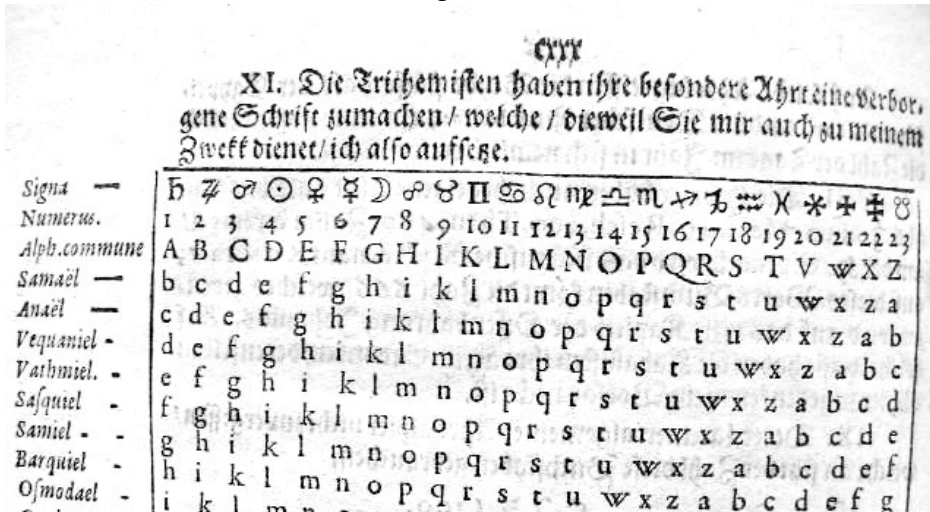 cxxx
XI. Die Trithemisten haben ihre besondere Ahrt eine verbor-
gene Schrift zumachen / welche / dieweil Sie mir auch zu meinem
Zwekk dienet / ich also auffsetze.
Signa — ♄ ♃ ♂ ☉ ♀ ☿ ☽ ☍ ♉ ♊ ♋ ♌ ♍ ♎ ♏ ♐ ♑ ♒ ♓ * ☋
Numerus. 1 2 3 4 5 6 7 8 9 10 11 12 13 14 15 16 17 18 19 20 21 22 23
Alph.commune A B C D E F G H I K L M N O P Q R S T V w X Z
Samaël — b c d e f g h i k l m n o p q r s t u w x z a
Anaël — c d e f g h i k l m n o p q r s t u w x z a b
Vequaniel - d e f g h i k l m n o p q r s t u w x z a b c
Vathmiel. - e f g h i k l m n o p q r s t u w x z a b c d
Sasquiel - f g h i k l m n o p q r s t u w x z a b c d e
Samiel - - g h i k l m n o p q r s t u w x z a b c d e f
Barquiel - h i k l m n o p q r s t u w x z a b c d e f g
Osmodael - i k l m n